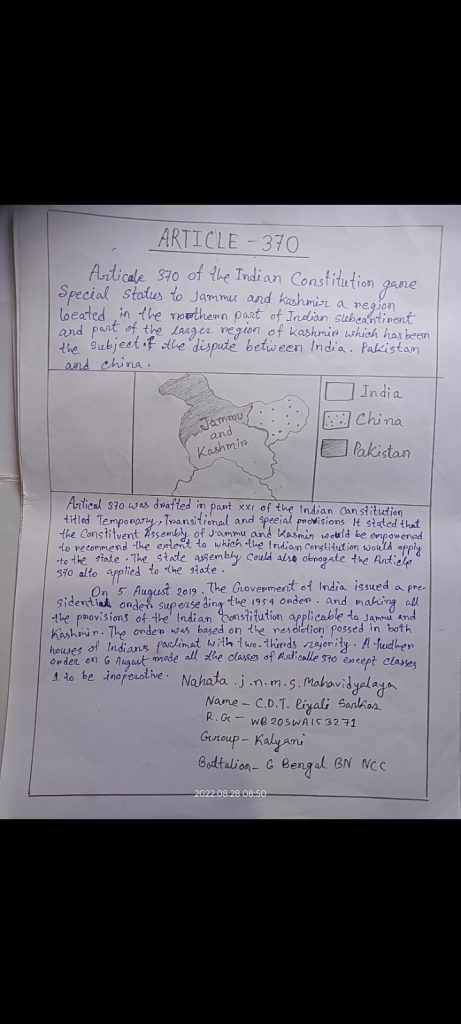 ARTICLE - 370
Article 370 of the Indian Constitution gave
Special Status to Jammu and Kashmir a region
located in the northern part of Indian subcantinent
and part of the larger region of Kashmir which has been
the subject of the dispute between India. Pakistan
and china.
Jammu
and
Kashmir
India
China
Pakistan
Artical 370 was drafted in part xxi of the Indian Constitution
titled Temporary, Transitional and special provisions It stated that
the Constituent Assembly of Jammu and Kasmir would be empowered
to recommend the extent to which the Indian Constitution would apply
to the state. The state assembly Could also abrogate the Article
370 alto applied to the state.
On 5 August 2019. The Government of India issued a pre-
sidential orden superseding the 1954 order. and making all
the provisions of the Indian Constitution applicable to Jammu and
Kashmir. The orden was based on the resolution possed in both
houses of Indians parlimat with two-thirds majority. A further
order on 6 August made all the clases of Articalle 370 except clases
1 to be inoperative.
Nahata. j. n. m. s. Mahavidyalaya
Name - C.D.T. Piyali Sarkar
R.G - WB20SWA153271
Group - Kalyani
Battalion - 6 Bengal BN NCC
2022.08.28 08:50